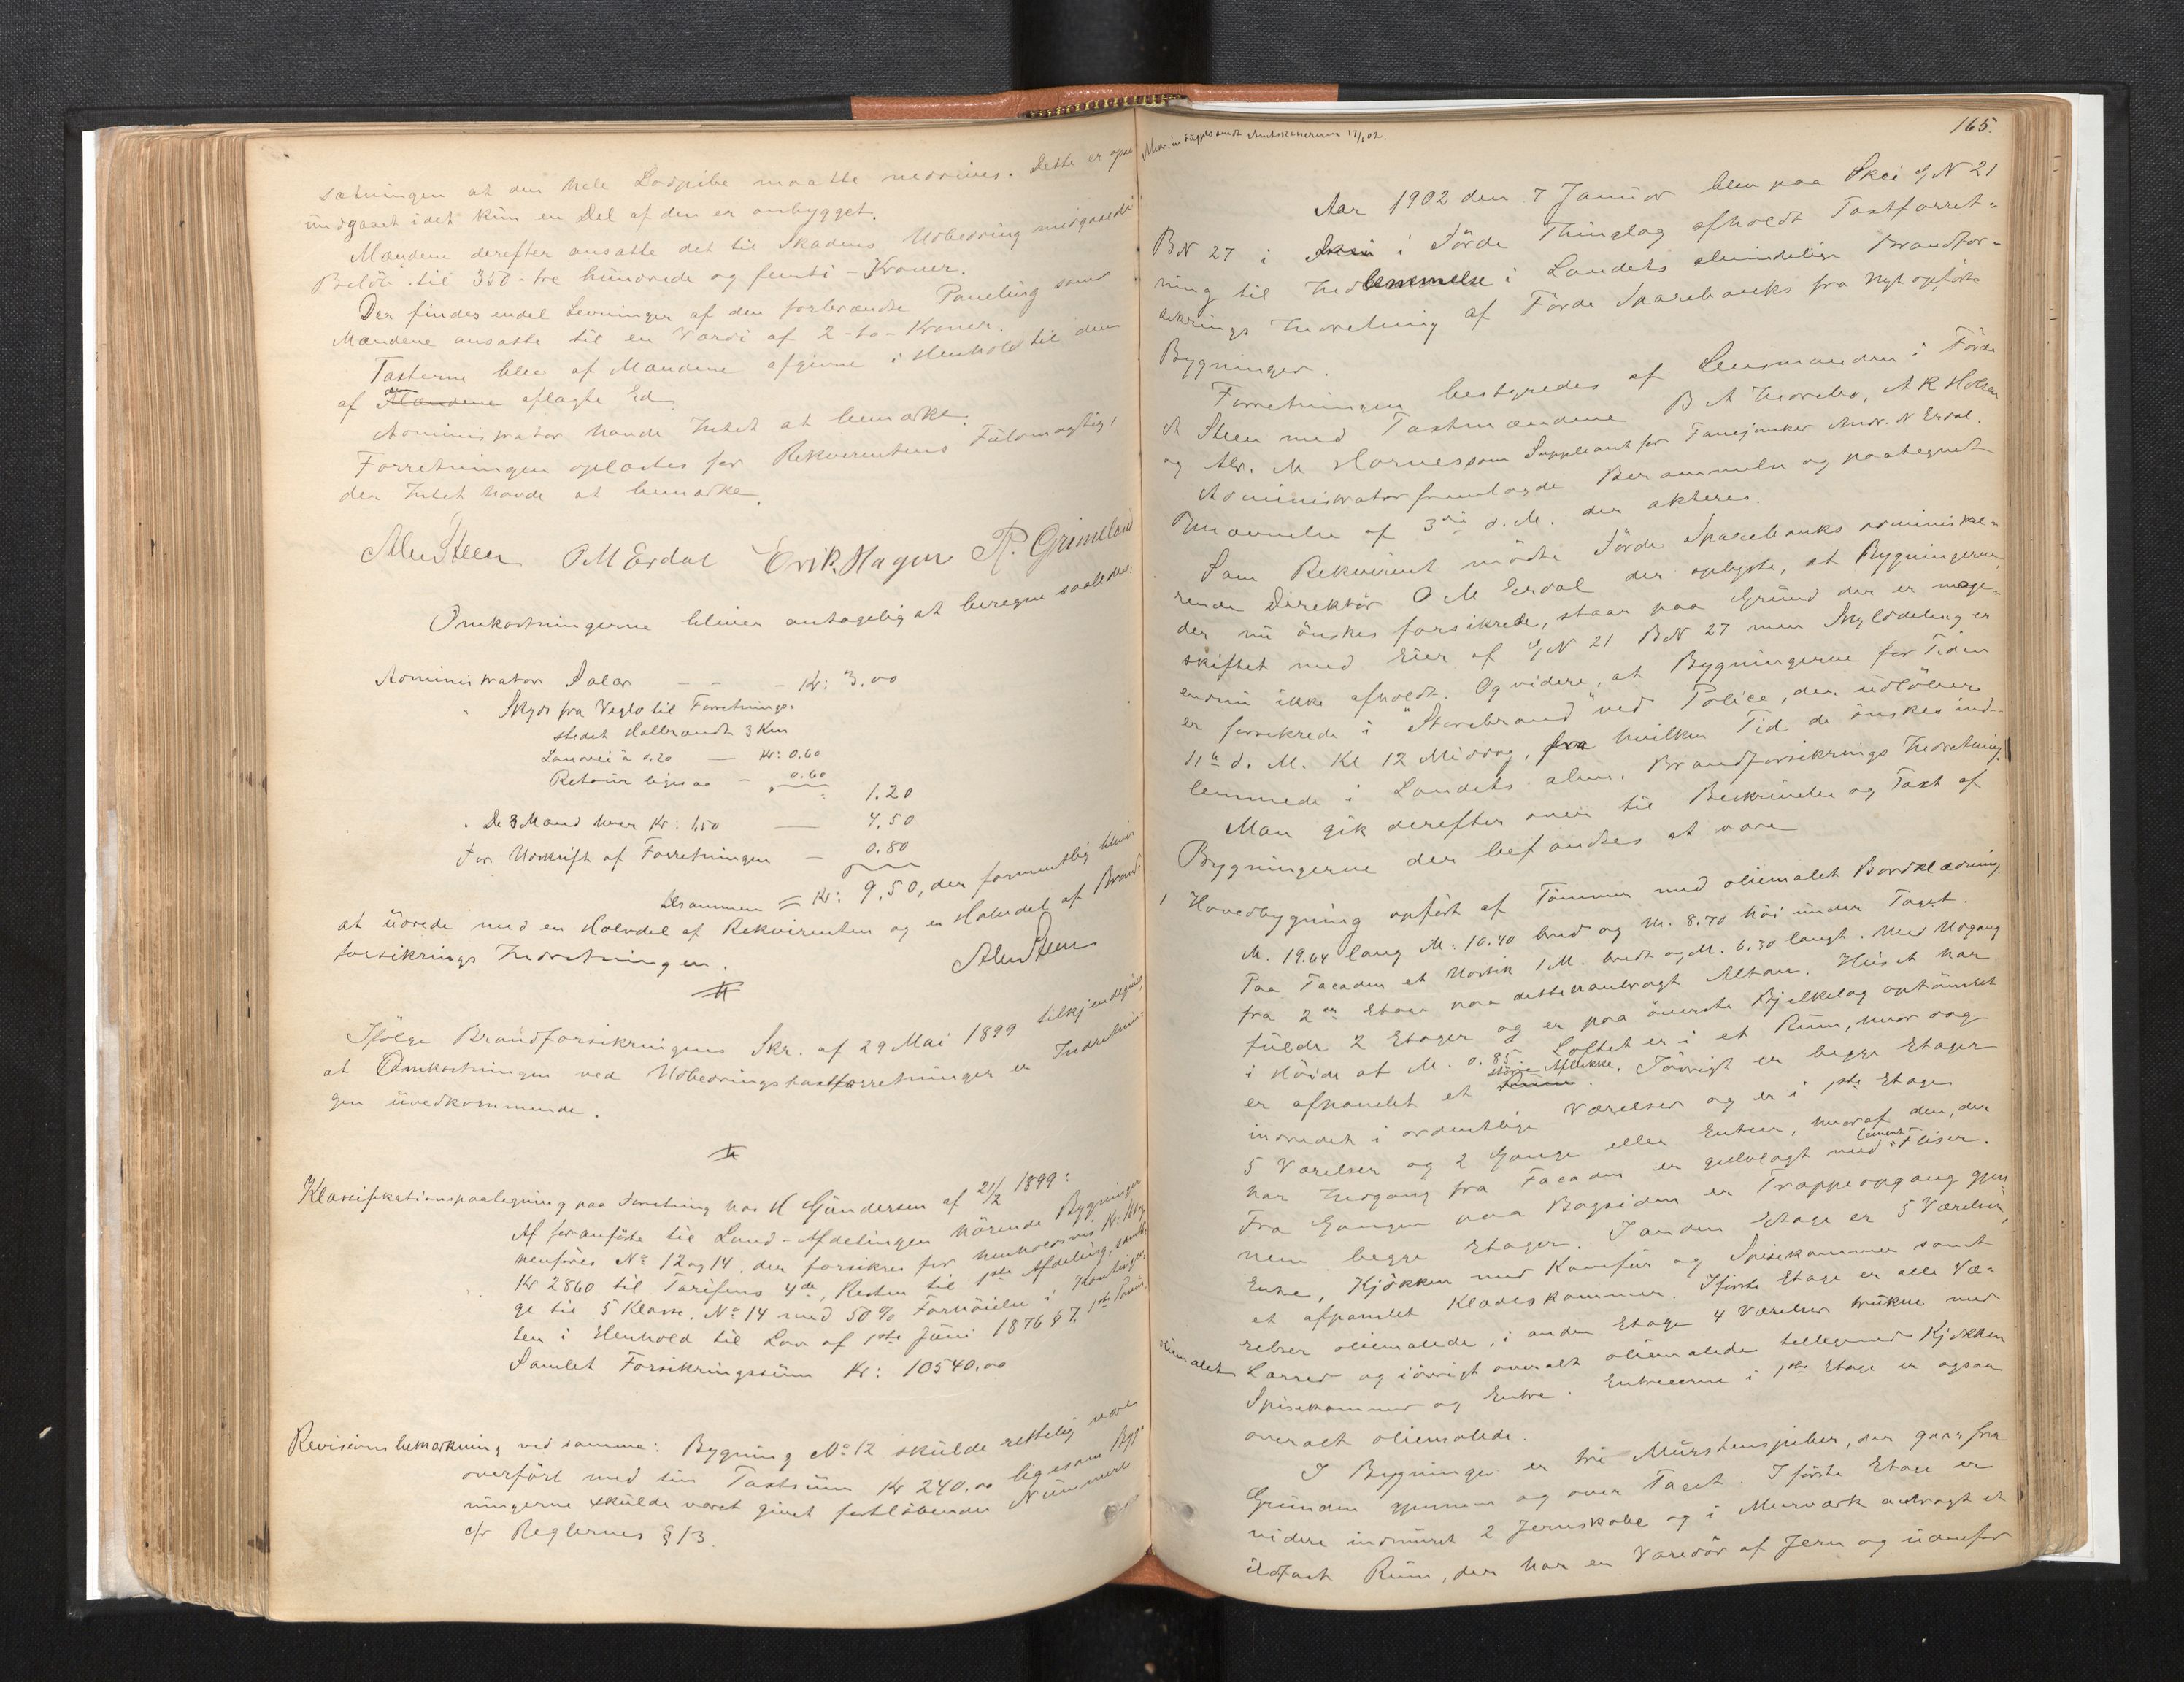 sætningen at den hele Lodpibe maatte nedrives. Dette er
undgaaet idet kun en Del af den er ombygget.
Mændene derefter ansatte det til Skadens Udbedring medgaaede
Beløb til 350 - tre hundrede og femti - Kroner.
Der findes endel Levninger af den forbrændte Paneling som
Mændene ansatte til en Værdi af 2 - to - Kroner.
Taxterne blev af Mændene afgivne i Henhold til den
af Mændene aflagte Ed
Administrator havde Intet at bemærke.
Forretningen oplæstes for Rekvirentens Fuldmægtig,
der Intet havde at bemærke.
Alm Steen O M Erdal Erik Hagen R. Grimeland
Omkostningerne bliver antagelig at beregne saaledes:
Administrator Salær - - - Kr: 3.00
" Skyds fra Veglo til Forretnings-
stedet Halbrændt 3 Km
Landvei à 0.20 — Kr: 0.60
Retour ligesaa - " 0.60
" 1.20
" De 3 Mænd hver Kr: 1,50 — 4.50
For Udskrift af Forretningen — 0.80
Tilsammen = Kr: 9.50, der formentlig bliver
at udrede med en Halvdel af Rekvirenten og en Halvdel af Brand-
forsikrings Indretningen.
Alm Steen
Ifølge Brandforsikringens Skr. af 29 Mai 1899 tilkjendegives,
at Omkostningen ved Udbedringstaxtforretninger er Indretnin-
gen uvedkommende.
Klassifikationspaategning paa Forretning hos H Gundersen af 21/2 1899:
Af foranførte til Land-Afdelingen hørende Bygninger
henføres No 12 og 14, der forsikres for henholdsvis Kr.
Kr 2860 til Tarifens 4de, Resten til 1ste Afdeling, samt-
ge til 5 Klasse. No 14 med 50% Forhøielse i Kontingen-
ten i Henhold til Lov af 1ste Juni 1876 § 7, 1ste
Samlet Forsikringssum Kr: 10540.00
Revisionsbemærkning ved samme: Bygning No 12 skulde rettelig være
overført med sin Taxtsum Kr 240.00 ligesom Byg-
ningerne skulde været givet fortløbende Nummere
cfr Reglernes § 13.
165.
Aar 1902 den 7 Januar blev paa Skei GN 21
BN 27 i Skei i Førde Thinglag afholdt Taxtforret-
ning til Indlemmelse i Landets almindelige Brandfor-
sikrings Indretning af Førde Sparebanks fra nyt opførte
Bygninger.
Forretningen bestyredes af Lensmanden i Førde
A Steen med Taxtmændene B A Indrebø, A R Holsen
og Alb. M Hornes som Suppleant for Fanejunker Andr. N Erdal.
Administrator fremlagde Berammelse og paategnet
Opnævnelse af 3die d. M. der akteres.
Som Rekvirent mødte Førde Sparebanks administre-
rende Direktør O M Erdal der oplyste, at Bygningerne,
der nu ønskes forsikrede, staar paa Grund der er mage-
skiftet med Eier af GN 21 BN 27 men Skylddeling er
endnu ikke afholdt. Og videre, at Bygningerne for Tiden
er forsikrede i "Storebrand" ved Police, der udløber
11te d. M. Kl 12 Middag, fra hvilken Tid de ønskes ind-
lemmede i Landets alm. Brandforsikrings Indretning.
Man gik derefter over til Beskrivelse og Taxt af
Bygningerne der befandtes at være
1 Hovedbygning opført af Tømmer med oliemalet Bordklædning,
M. 19.64 lang M: 10.40 bred og M. 8.70 høi under Taget.
Paa Facaden et Udstik 1 M. bredt og M. 6.30 langt. Med Udgang
fra 2den Etage paa dette er anbragt Altan. Huset har
fulde 2 Etager og er paa øverste Bjelkelag optømret
i Høide af M. 0.85. Loftet er i et Rum, hvor dog
er afpanelet et større Aflukke. Iøvrigt er begge Etager
indredet i ordentlige Værelser og er i 1ste Etage
5 Værelser og 2 Gange eller Entreer, hvoraf den, der
har Indgang fra Facaden er gulvlagt med Cement-Fliser.
Fra Gangen paa Bagsiden er Trappeopgang gjen-
nem begge Etager. I anden Etage er 5 Værelser,
Entre, Kjøkken med Komfur og Spisekammer samt
et afpanelet Klædeskammer. I første Etage er alle Væ-
relser oliemalede, i anden Etage 4 Værelser trukne med
oliemalet Lærred og iøvrigt overalt oliemalede tillegemed Kjøkken
Spisekammer og Entre. Entreerne i 1ste Etage er ogsaa
overalt oliemalede.
I Bygningen er tre Murstenspiber, der gaar fra
Grunden gjennem og over Taget. I første Etage er
videre indmuret 2 Jernskabe og i Murværk anbragt et
ildfast Rum, der har en Varedør af Jern og udenfor